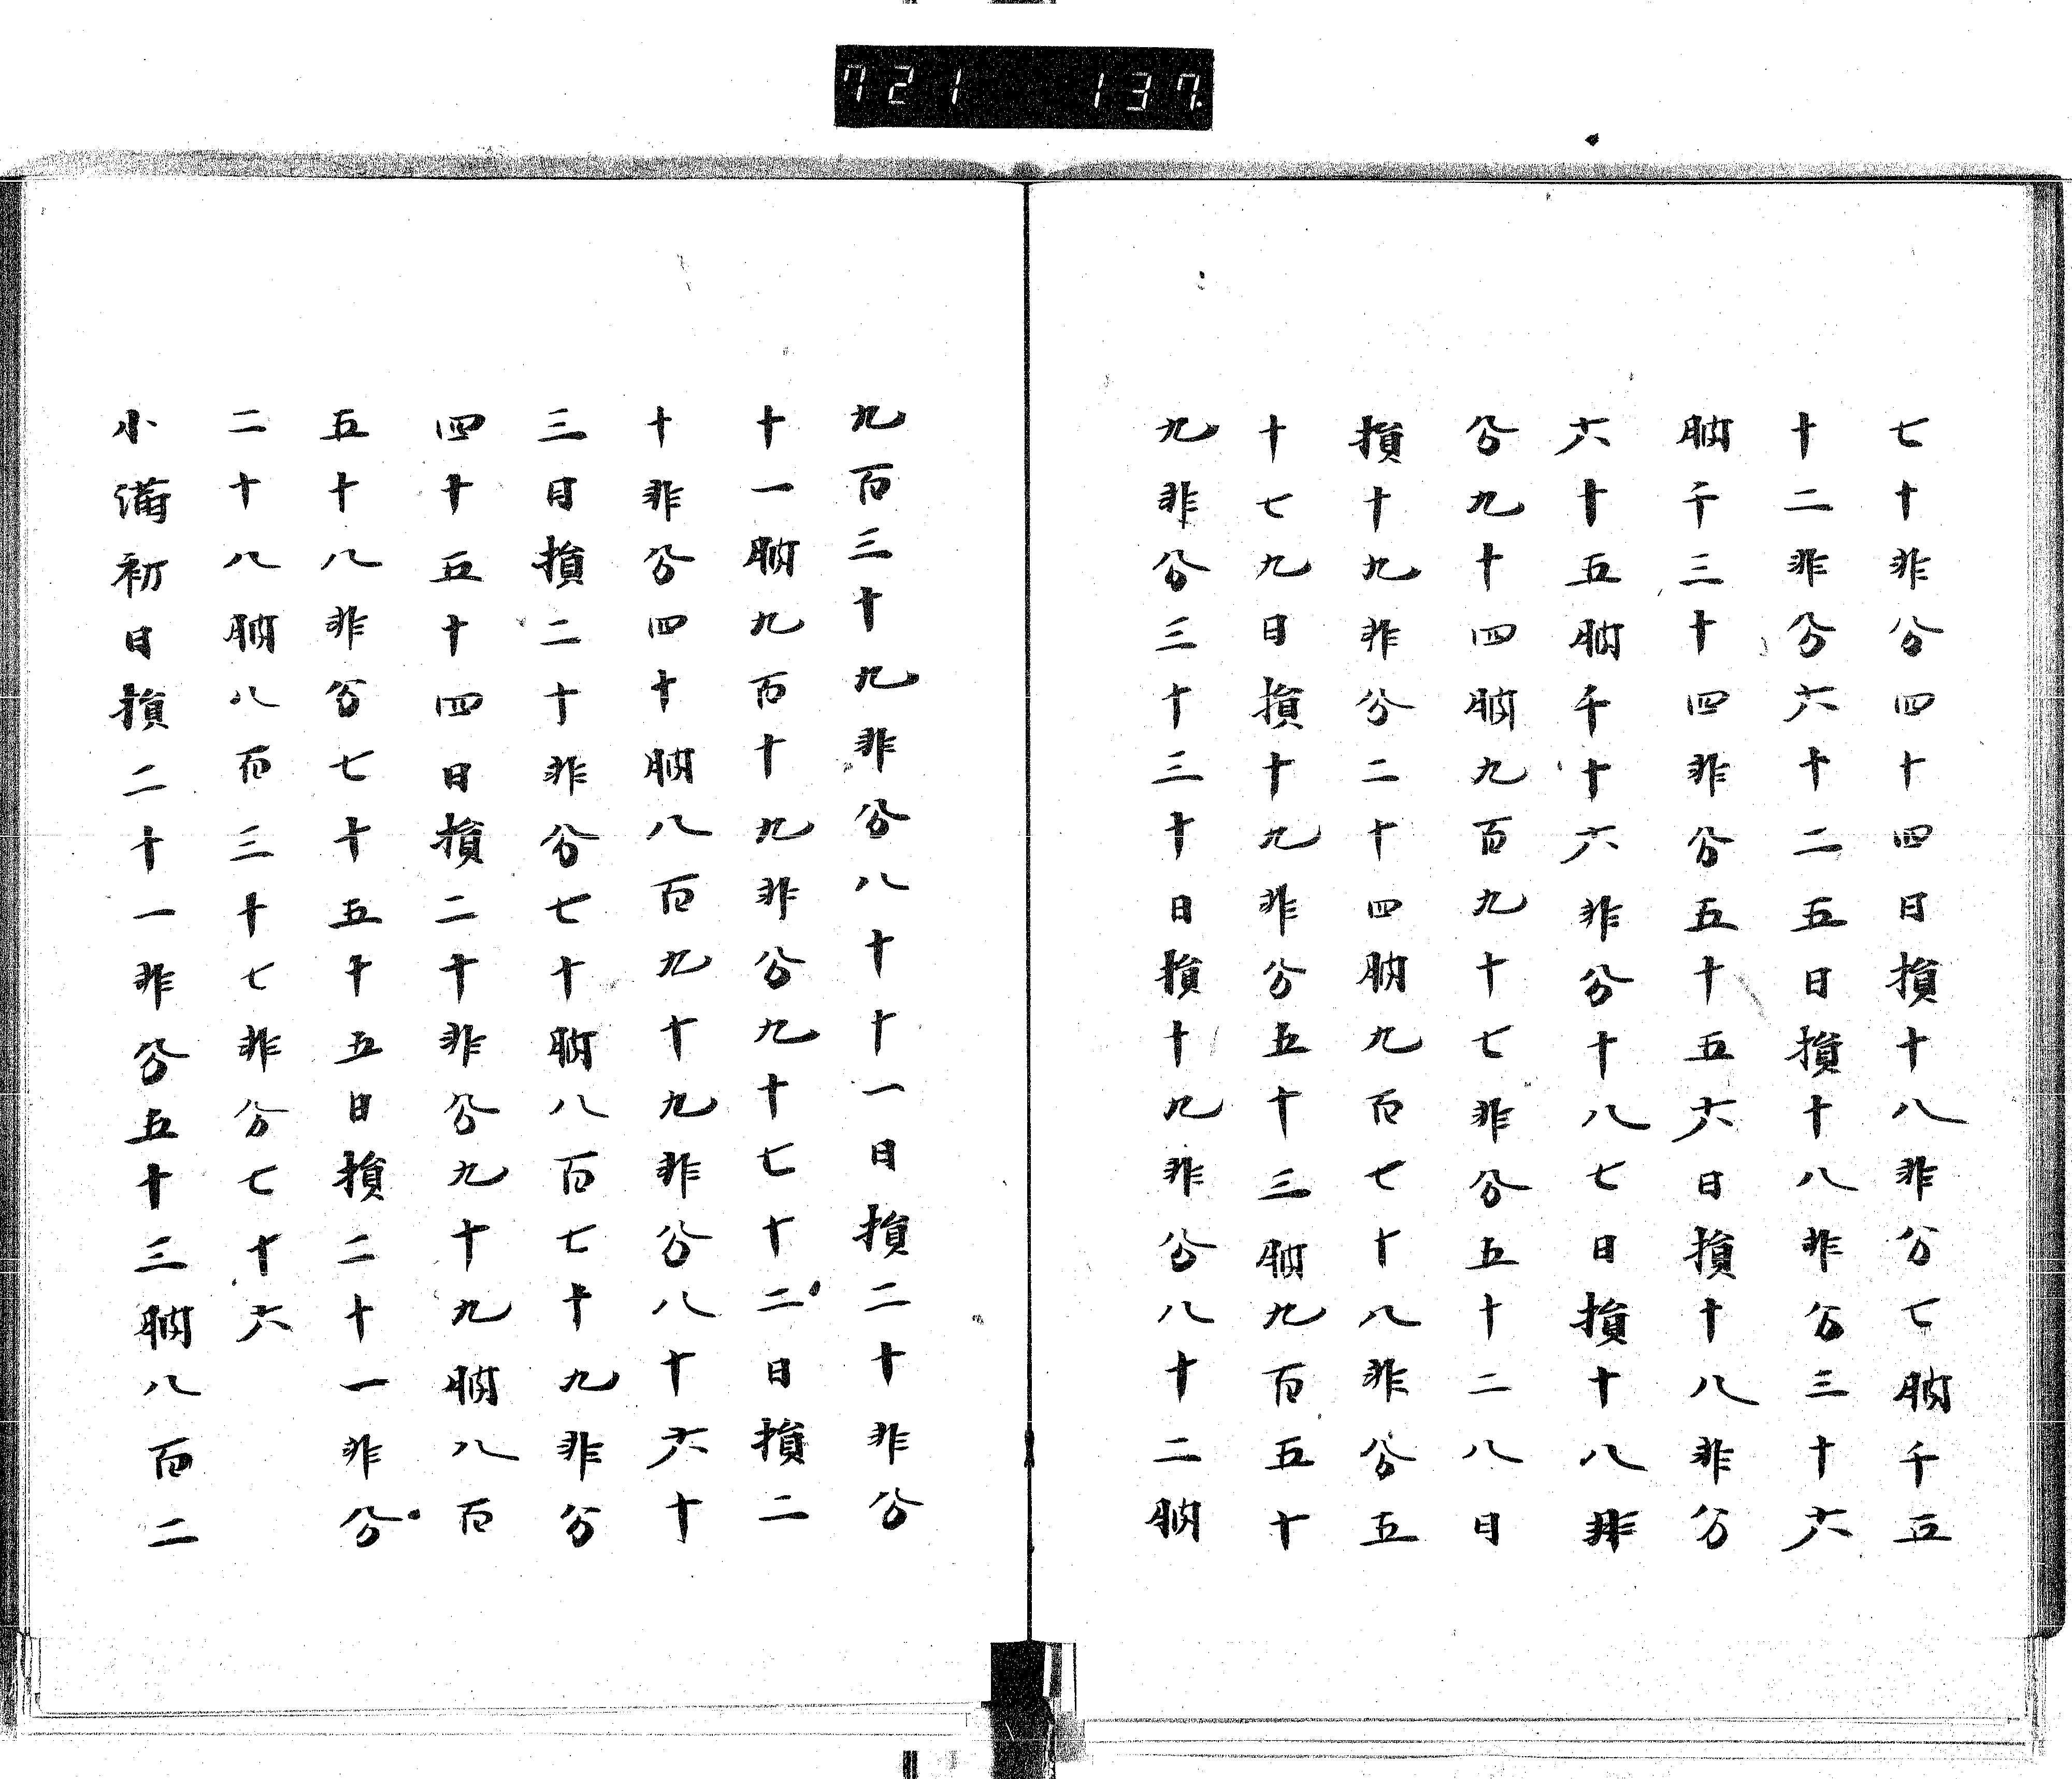 721 137
七十非分四十四日損十八非分七朒千五
十二非分六十二五日損十八非分三十六
朒千三十四非分五十五六日損十八非分
六十五朒千十六非分十八七日損十八非
分九十四朒九百九十七非分五十二八日
損十九非分二十四朒九百七十八非分五
十七九日損十九非分五十三朒九百五十
九非分三十三十日損十九非分八十二朒
九百三十九非分八十十一日損二十非分
十一朒九百十九非分九十七十二日損二
十非分四十朒八百九十九非分八十六十
三日損二十非分七十朒八百七十九非分
四十五十四日損二十非分九十九朒八百
五十八非分七十五十五日損二十一非分
二十八朒八百三十七非分七十六
小滿初日損二十一非分五十三朒八百二